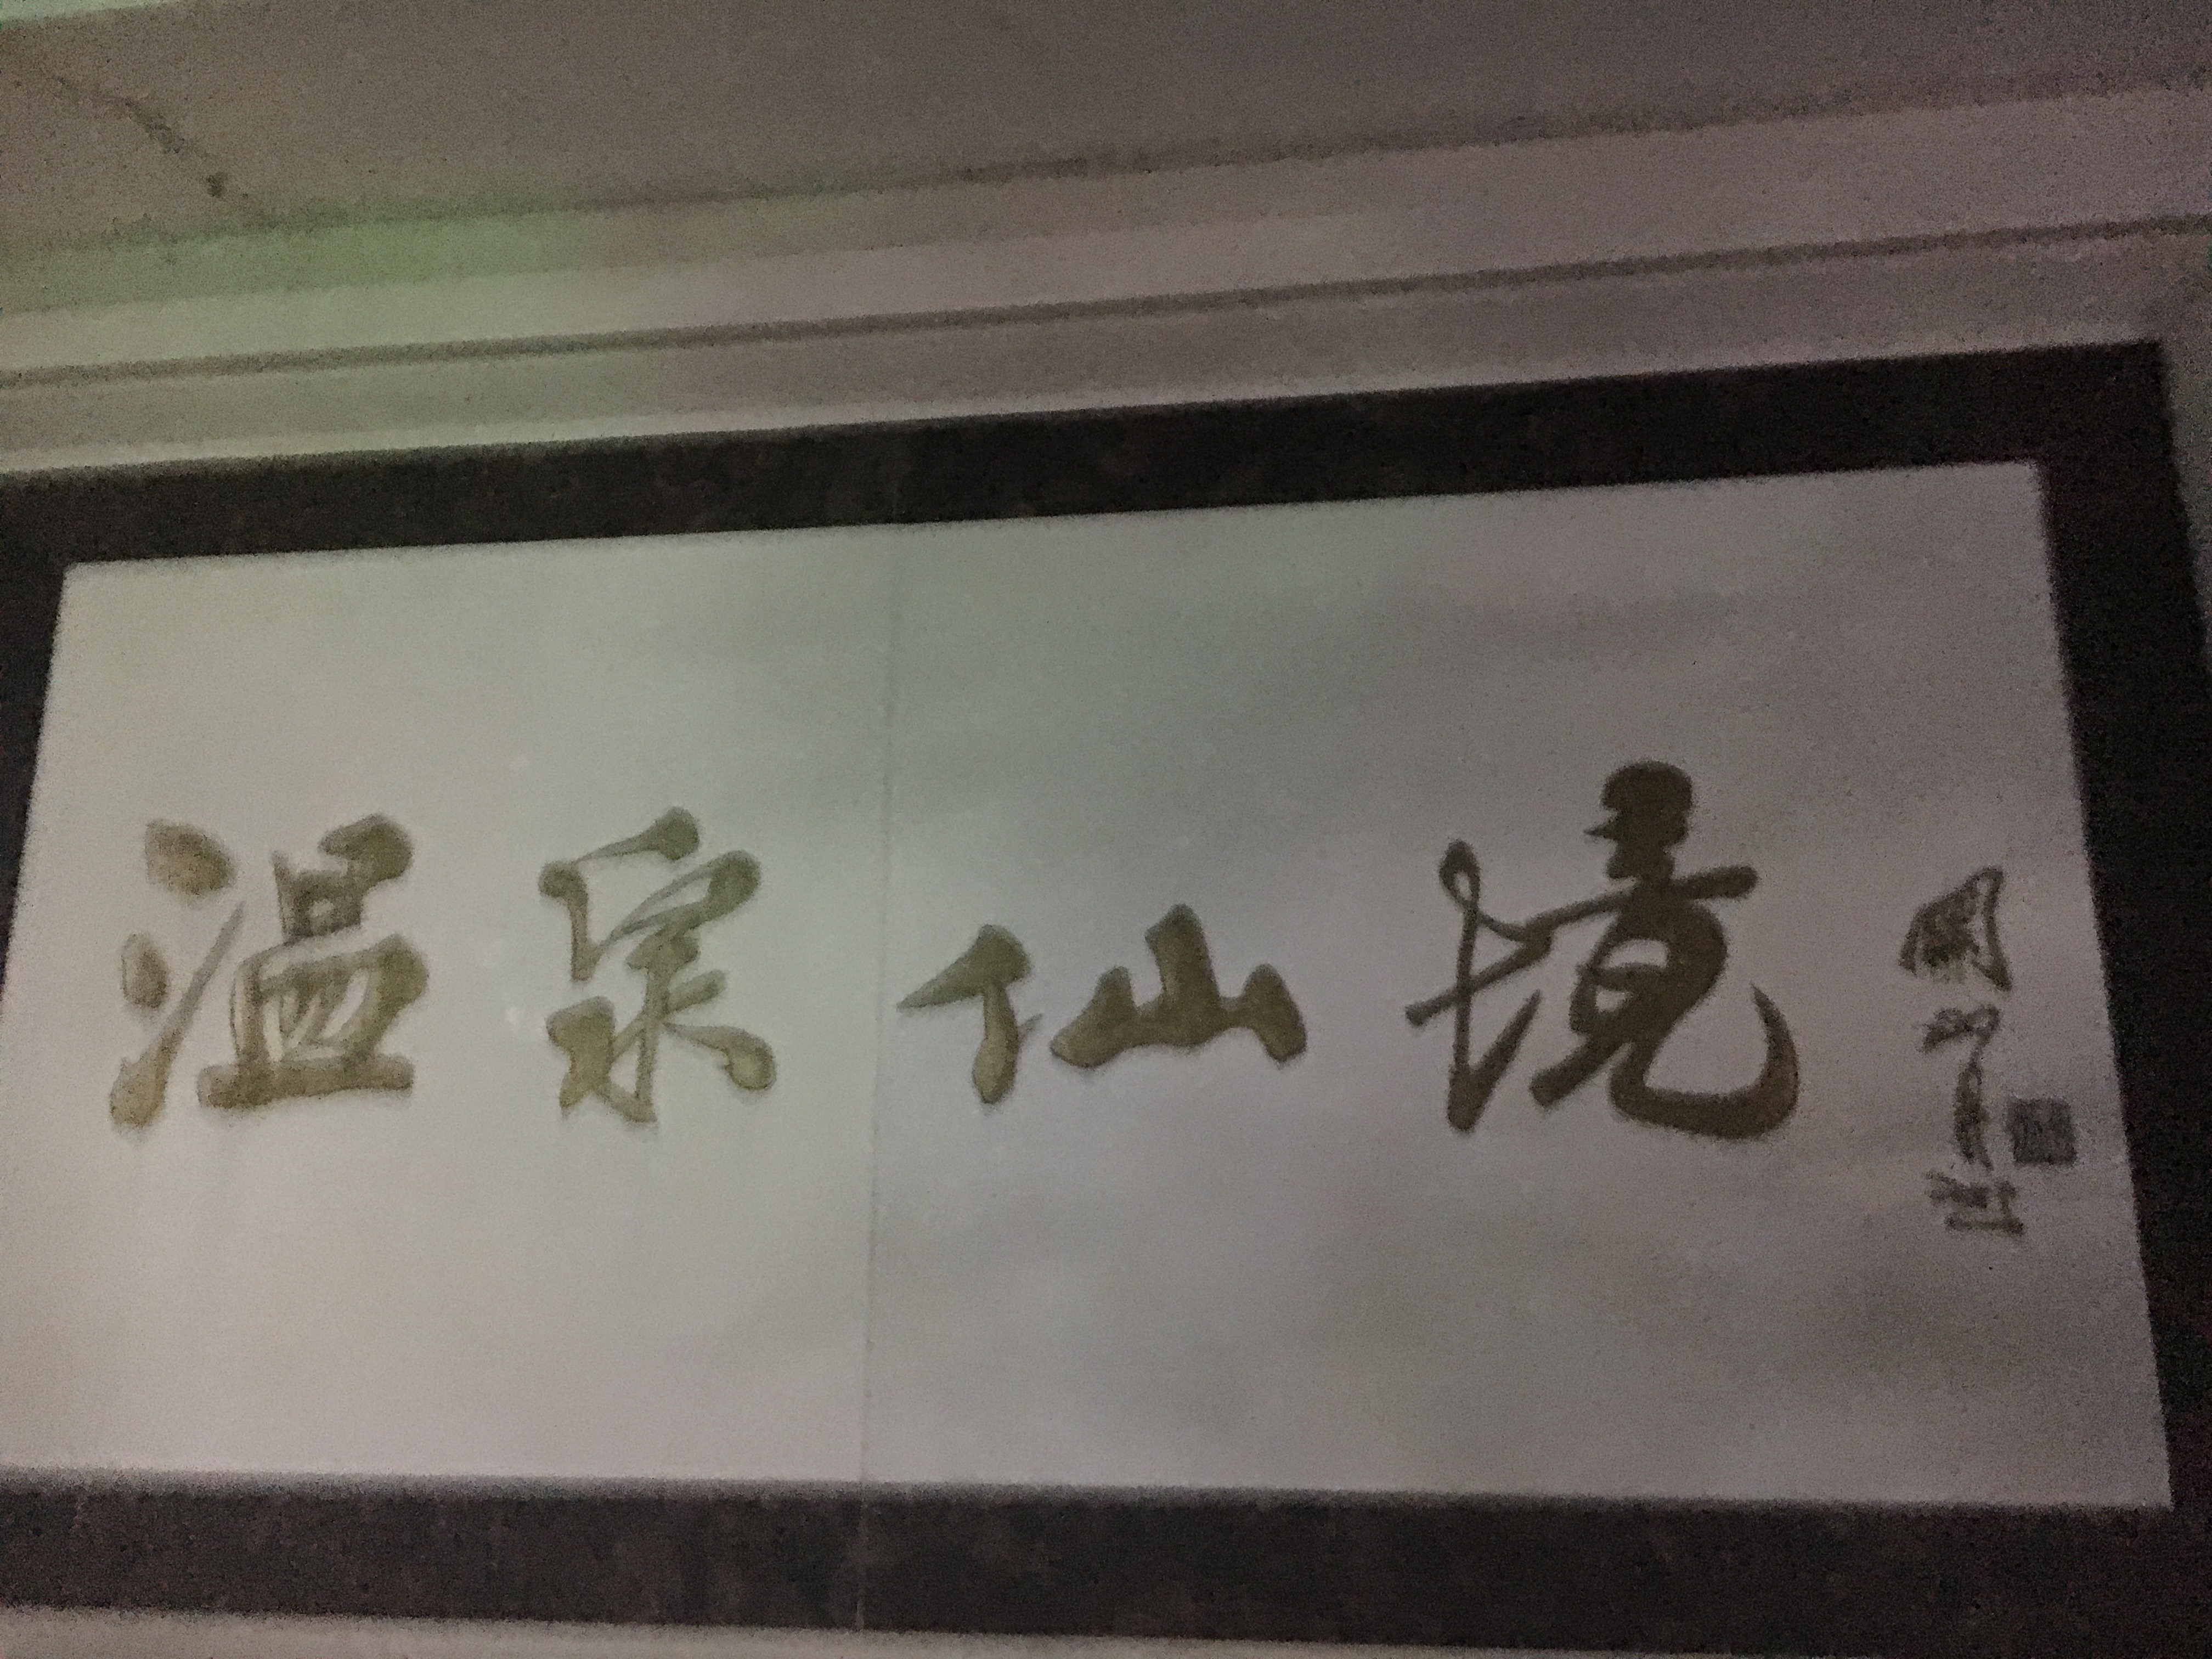 温泉仙境